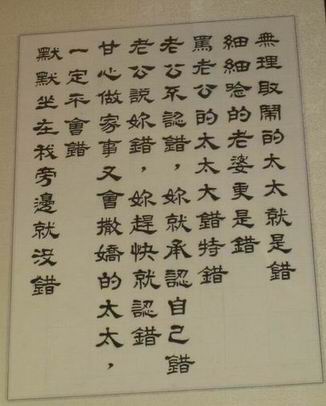 無理取鬧的太太就是錯
細細唸的老婆更是錯
罵老公的太太大錯特錯
老公不認錯，妳就承認自己錯
老公說妳錯，妳趕快就認錯
甘心做家事又會撒嬌的太太，
一定不會錯
默默坐在我旁邊就沒錯